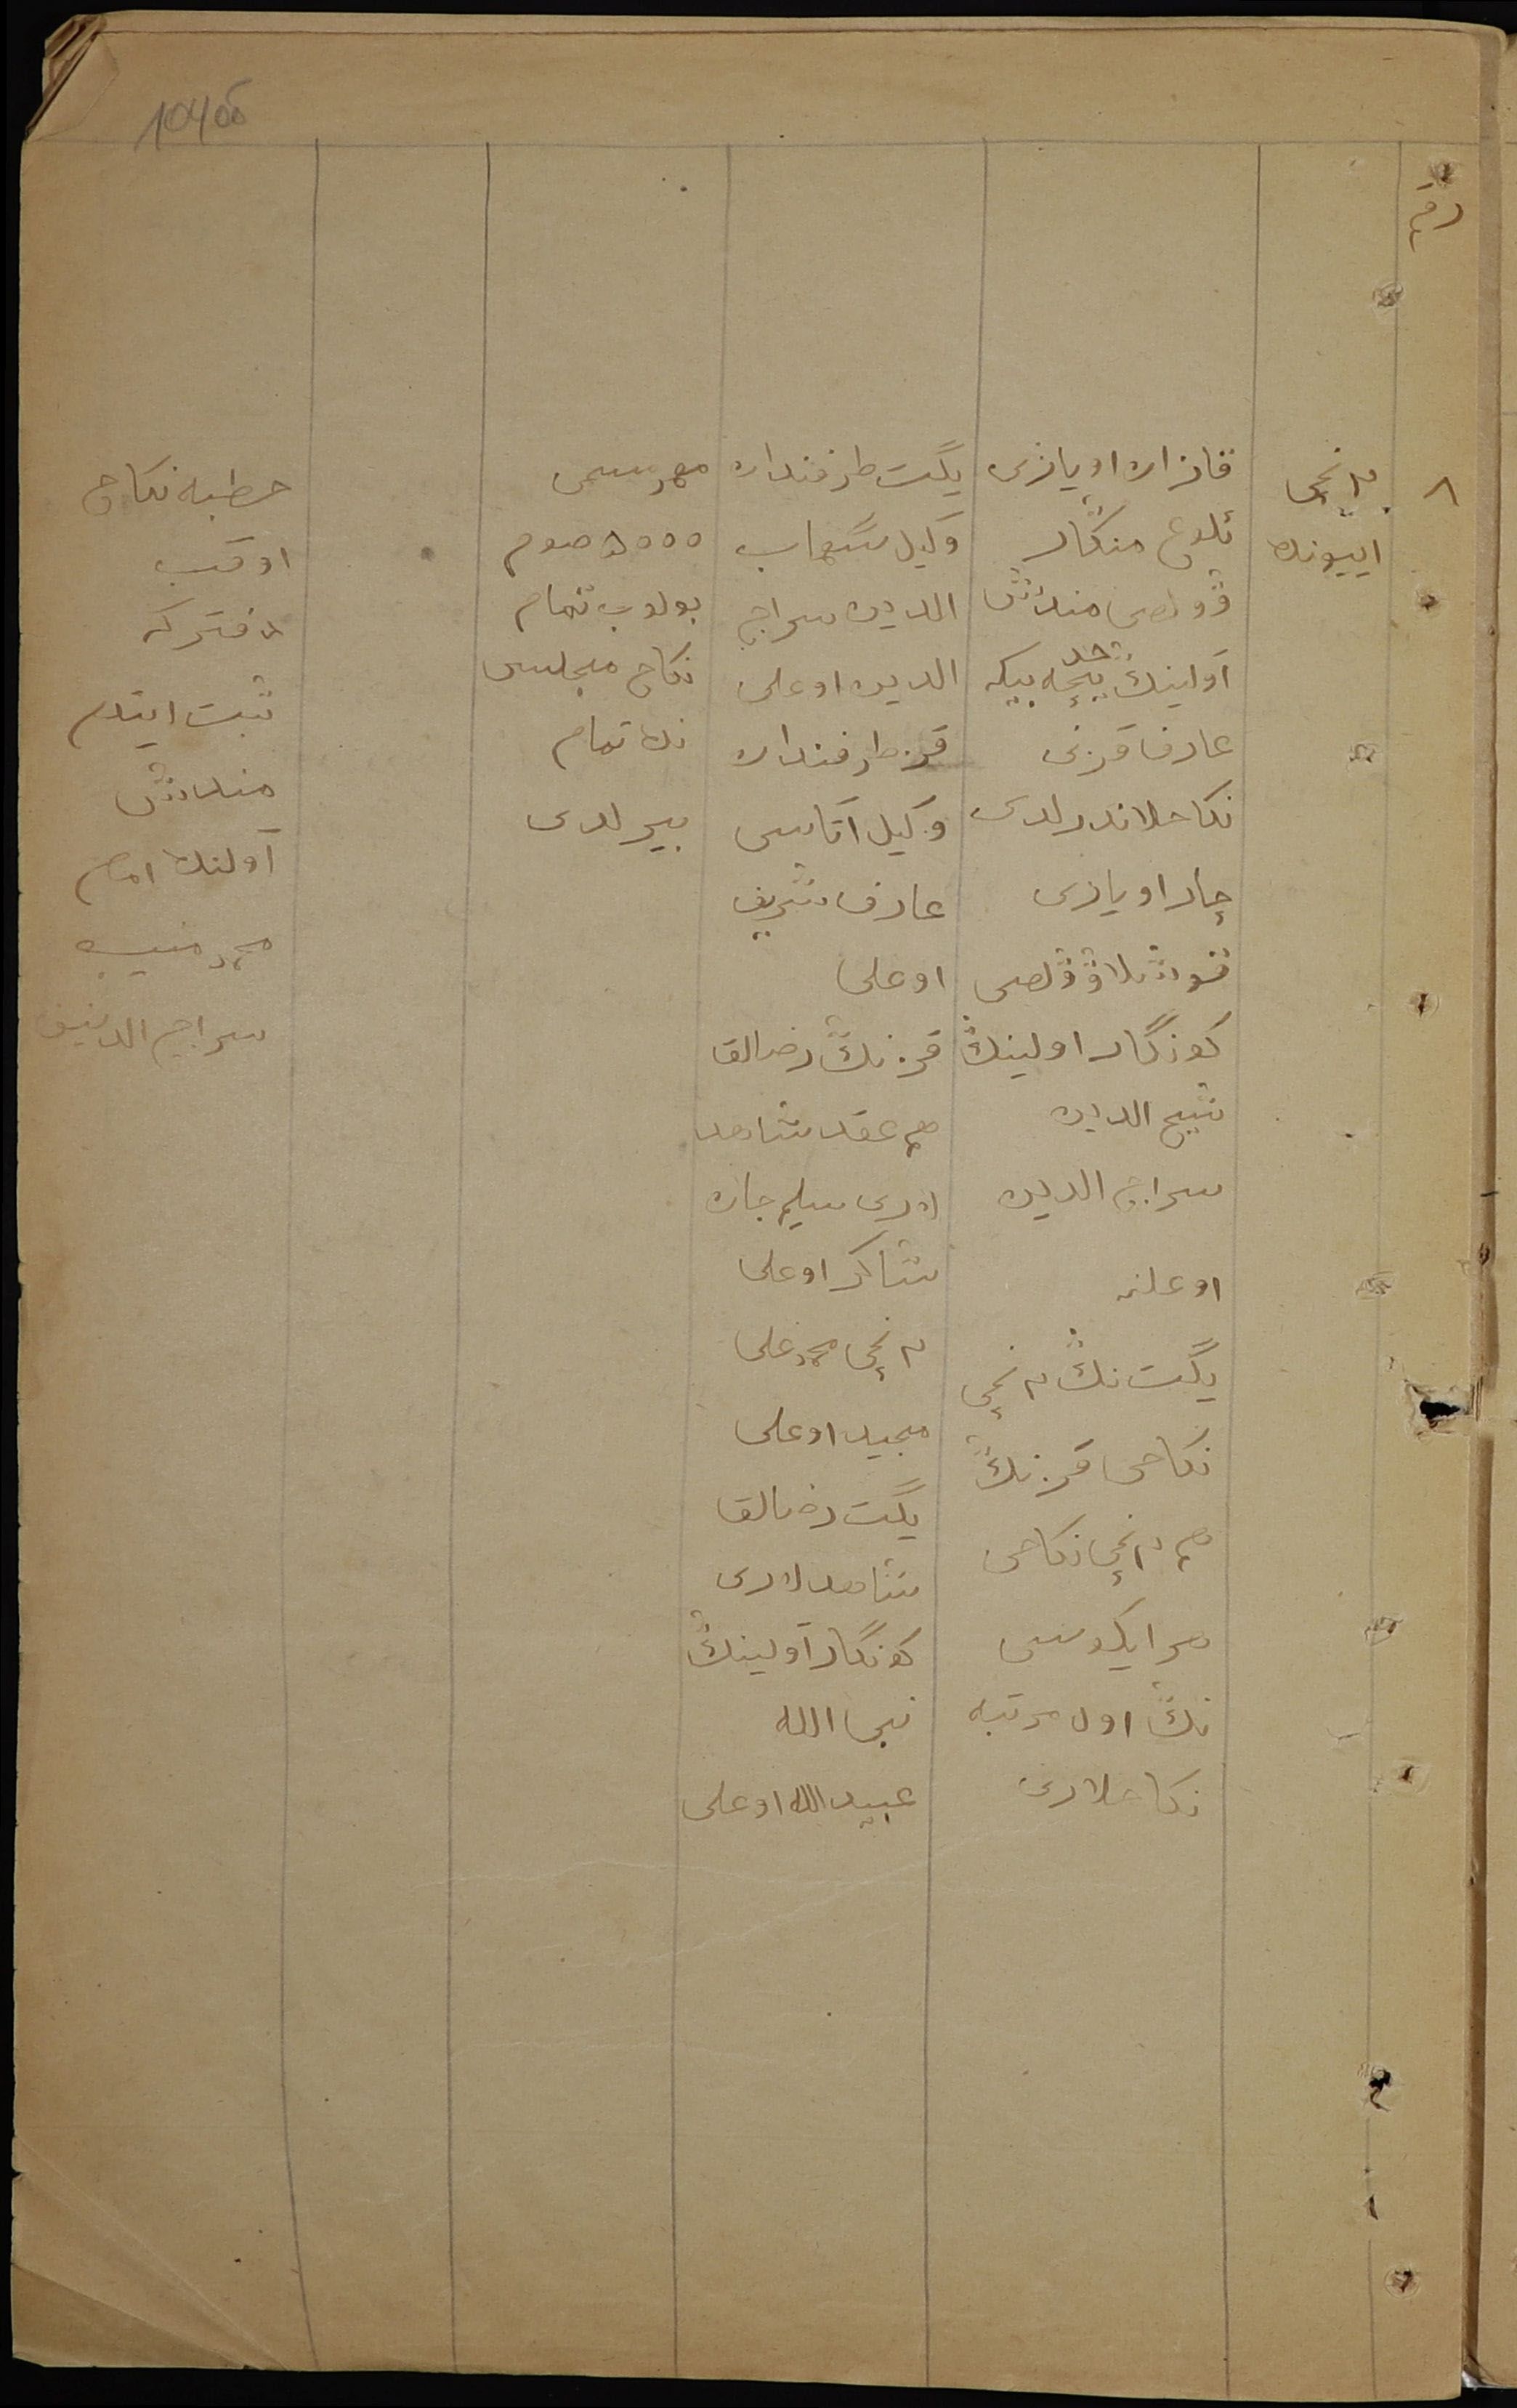 104об
رقم
٨
٣ نچی
ایيونده
قازان اویازی
ئلوغ منگار
وولصی مندش
آولینڭ خدیچه بیکه
عارف قزی
نکاحلاندرلدی
چار اویازی
قوشلاوچ وولصی
کوزگار اولینڭ
شیخ الدین
سراج الدین
اوغلنه
یگت نڭ ٢ نچی
نکاحی قز نڭ
هم ٢ نچی نکاحی
هر ایکوسی
نڭ اول مرتبه
نکاحلاری
یگت طرفندان
وکیل شهاب
الدین سراج
الدین اوغلی
قز طرفندان
وکیل آتاسی
عارف شریف
اوغلی
قز نڭ رضالق
هم عقد شاهد
لاری سلیم جان
شاکر اوغلی
٢ نچی محمد علی
مجید اوغلی
یگت رضالق
شاهدلاری
کوزگار آولینڭ
نبی الله
عبید الله اوغلی
مهر سمی
٥٠٠٠ صوم
بولوب تمام
نکاح مجلسی
نده تمام
بیرلدی
خطبه نکاح
اوقب
دفترکه
ثبت ایتدم
مندش
آولنڭ امام
محمد منیب
سراج الدینف